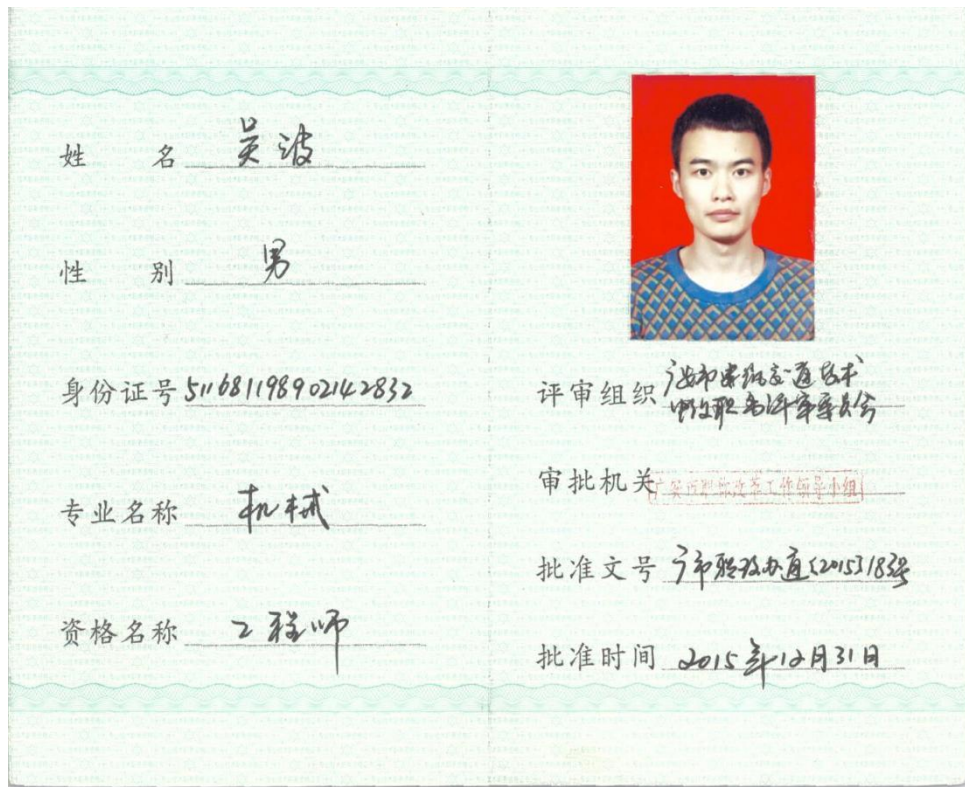 姓 名 吴波
性 别 男
身份证号 511681198902142832
专业名称 机械
资格名称 工程师
评审组织 广安市案组交通技术
中级职务评审委员会
审批机关 广安市职称改革工作领导小组
批准文号 广市职改办通[2015]183号
批准时间 2015年12月31日